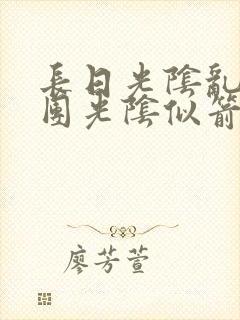 長日光陰亂
團光陰似箭
廖芳萱